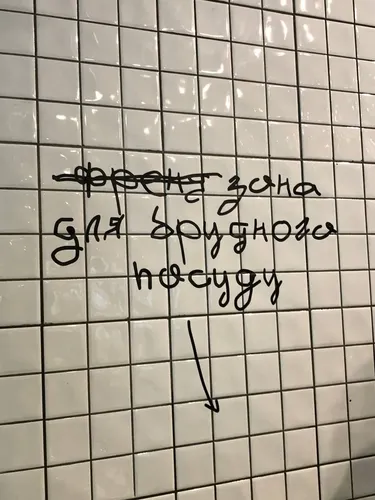 френд зона
для брудного
посуду